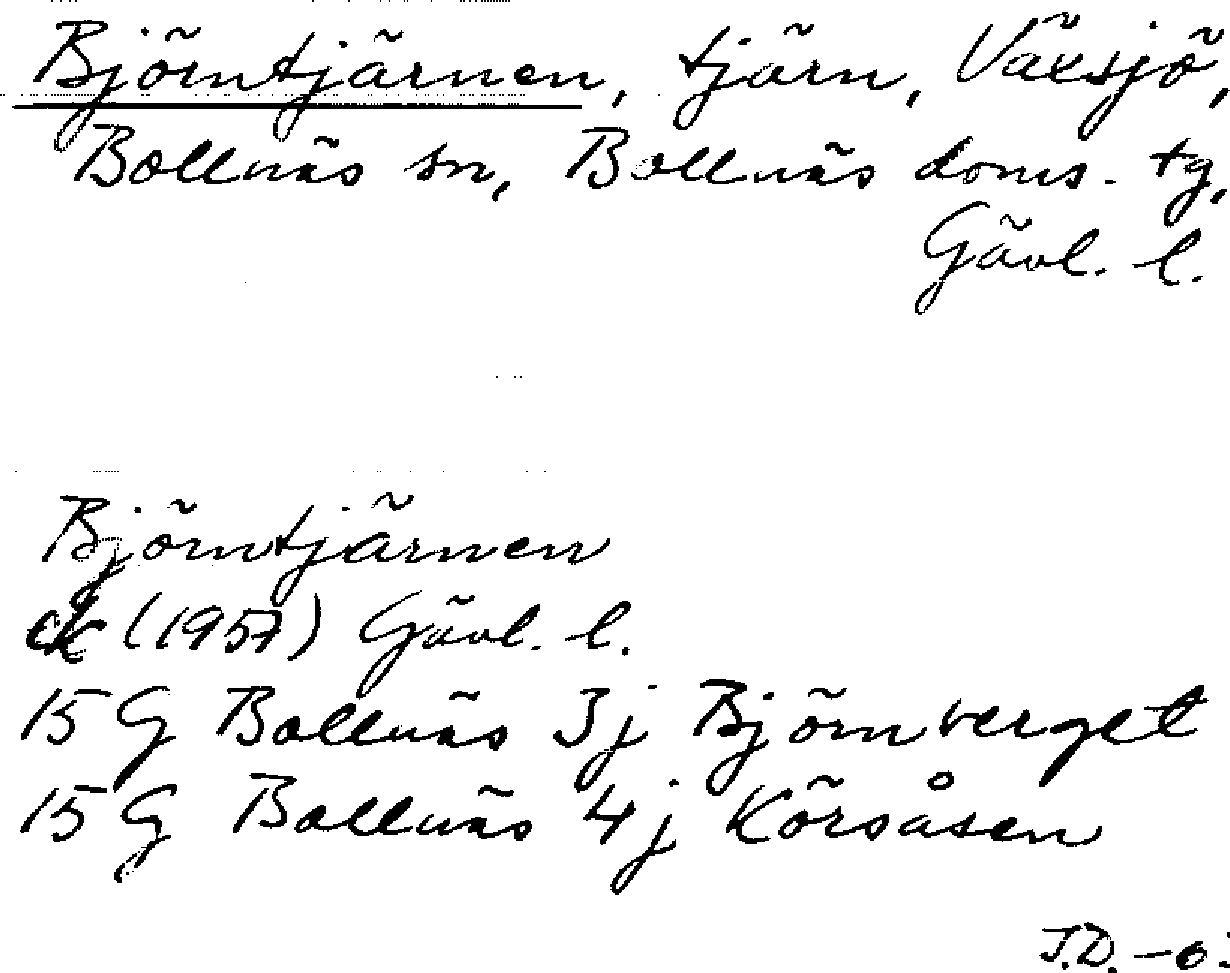 Björntjärnen, tjärn, Växsjö,
Bollnäs sn, Bollnäs doms. tg,
Gävl. l.
Björntjärnen
ek (1957) Gävl. l.
15 G Bollnäs 3j Björnverget
15 G Bollnäs 4j Körsåsen
J.D. -6